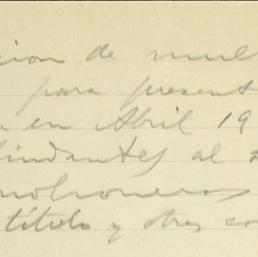 cion de mul
para present
en Abril 19
lindantes al
titulo y otras co